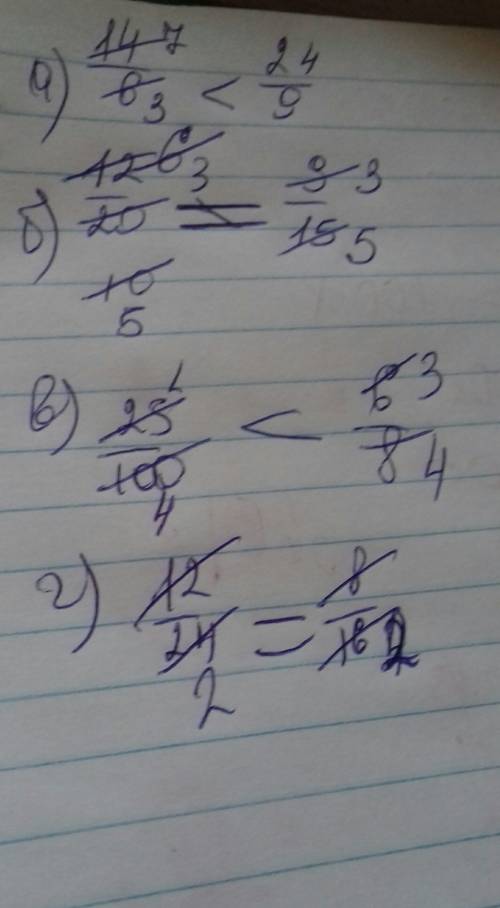 а) 14 7 / 6 3 < 24 / 9
б) 12 6 3 / 20 10 5 = 9 3 / 15 5
в) 25 1 / 100 4 < 6 3 / 8 4
г) 12 / 24 2 = 8 / 16 2